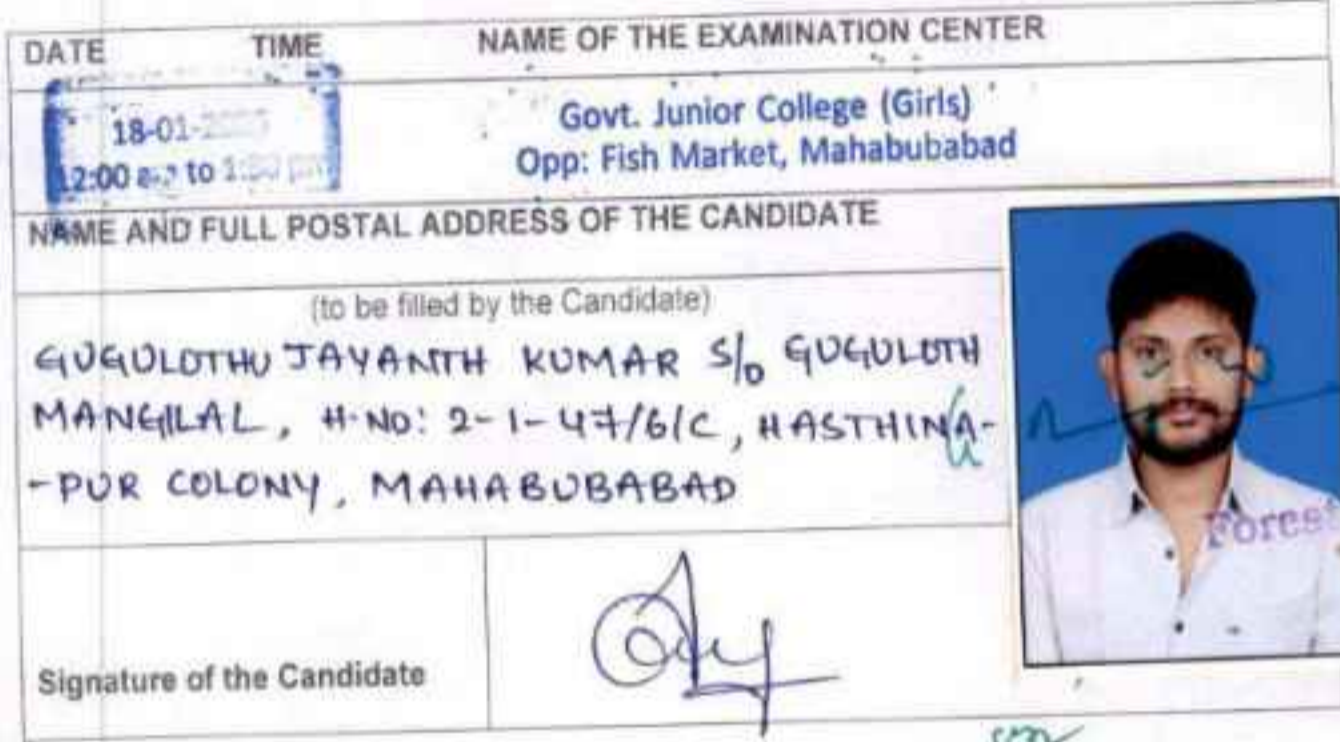 DATE TIME NAME OF THE EXAMINATION CENTER
18-01- Govt. Junior College (Girls)
12:00 to Opp: Fish Market, Mahabubabad
NAME AND FULL POSTAL ADDRESS OF THE CANDIDATE
(to be filled by the Candidate)
GUGULOTHU JAYANTH KUMAR S/o GUGULOTH
MANGILAL, H.NO: 2-1-47/6/C, HASTHINA-
-PUR COLONY, MAHABUBABAD
Forest
Signature of the Candidate